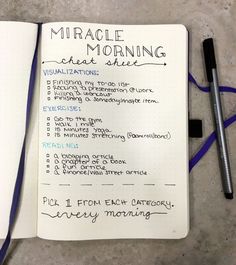 MIRACLE
MORNING
cheat sheet
VISUALIZATIONS:
Finishing my to-do list
Rocking a presentation @ work
Killing a workout
Finishing a someday/maybe item
EXERCISE:
Go to the gym
Walk 1 mile
15 Minutes yoga
15 Minutes stretching (foamroll/band)
READING:
a blogging article
a chapter of a book
a fun article
a finance/Wall Street article
PICK 1 FROM EACH CATEGORY,
every morning